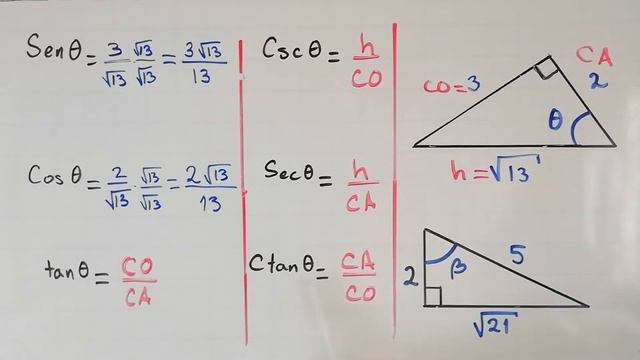 Senθ = 3/√13 · √13/√13 = 3√13/13
Cosθ = 2/√13 · √13/√13 = 2√13/13
tanθ = CO/CA
Cscθ = h/CO
Secθ = h/CA
Ctanθ = CA/CO
CA
2
CO=3
θ
h=√13
2
β
5
√21